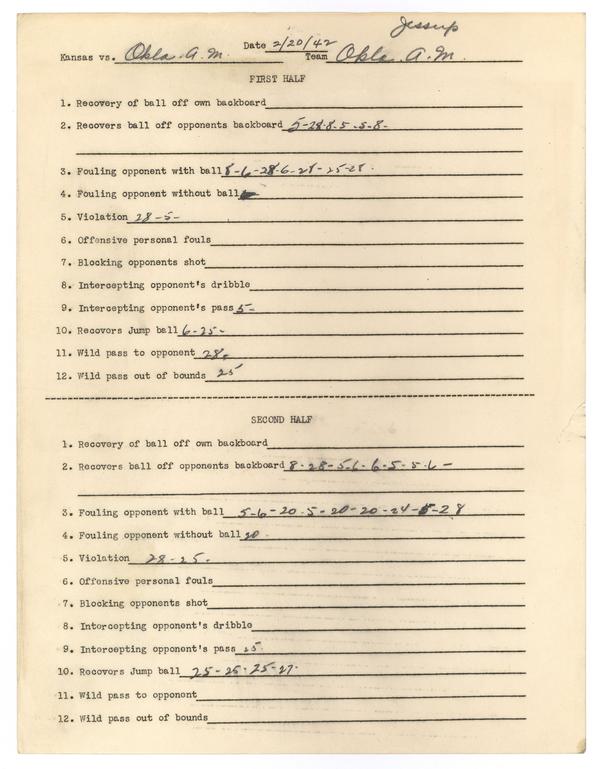 Jessup
Kansas vs. Okla. A. M. Date 2/20/42 Team Okla. A. M.
FIRST HALF
1. Recovery of ball off own backboard
2. Recovers ball off opponents backboard 5-28-8-5-5-8-
3. Fouling opponent with ball 8-6-28-6-28-25-28-
4. Fouling opponent without ball
5. Violation 28-5-
6. Offensive personal fouls
7. Blocking opponents shot
8. Intercepting opponent's dribble
9. Intercepting opponent's pass 5-
10. Recovers Jump ball 6-25-
11. Wild pass to opponent 28-
12. Wild pass out of bounds 25
SECOND HALF
1. Recovery of ball off own backboard
2. Recovers ball off opponents backboard 8-28-5-6-6-5-5-6-
3. Fouling opponent with ball 5-6-20-5-20-20-24-5-28
4. Fouling opponent without ball 20-
5. Violation 28-25-
6. Offensive personal fouls
7. Blocking opponents shot
8. Intercepting opponent's dribble
9. Intercepting opponent's pass 25-
10. Recovers Jump ball 25-25-25-27-
11. Wild pass to opponent
12. Wild pass out of bounds